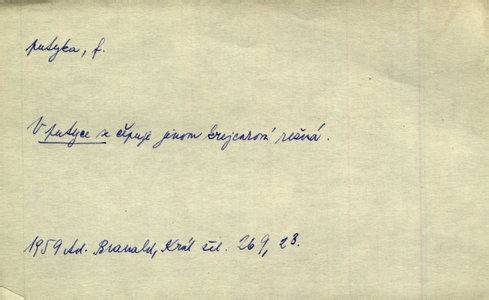 putyka, f.
V putyce se čepuje jenom krejcarová režná.
1959 Ad. Branald, Král žel. 269, 23.